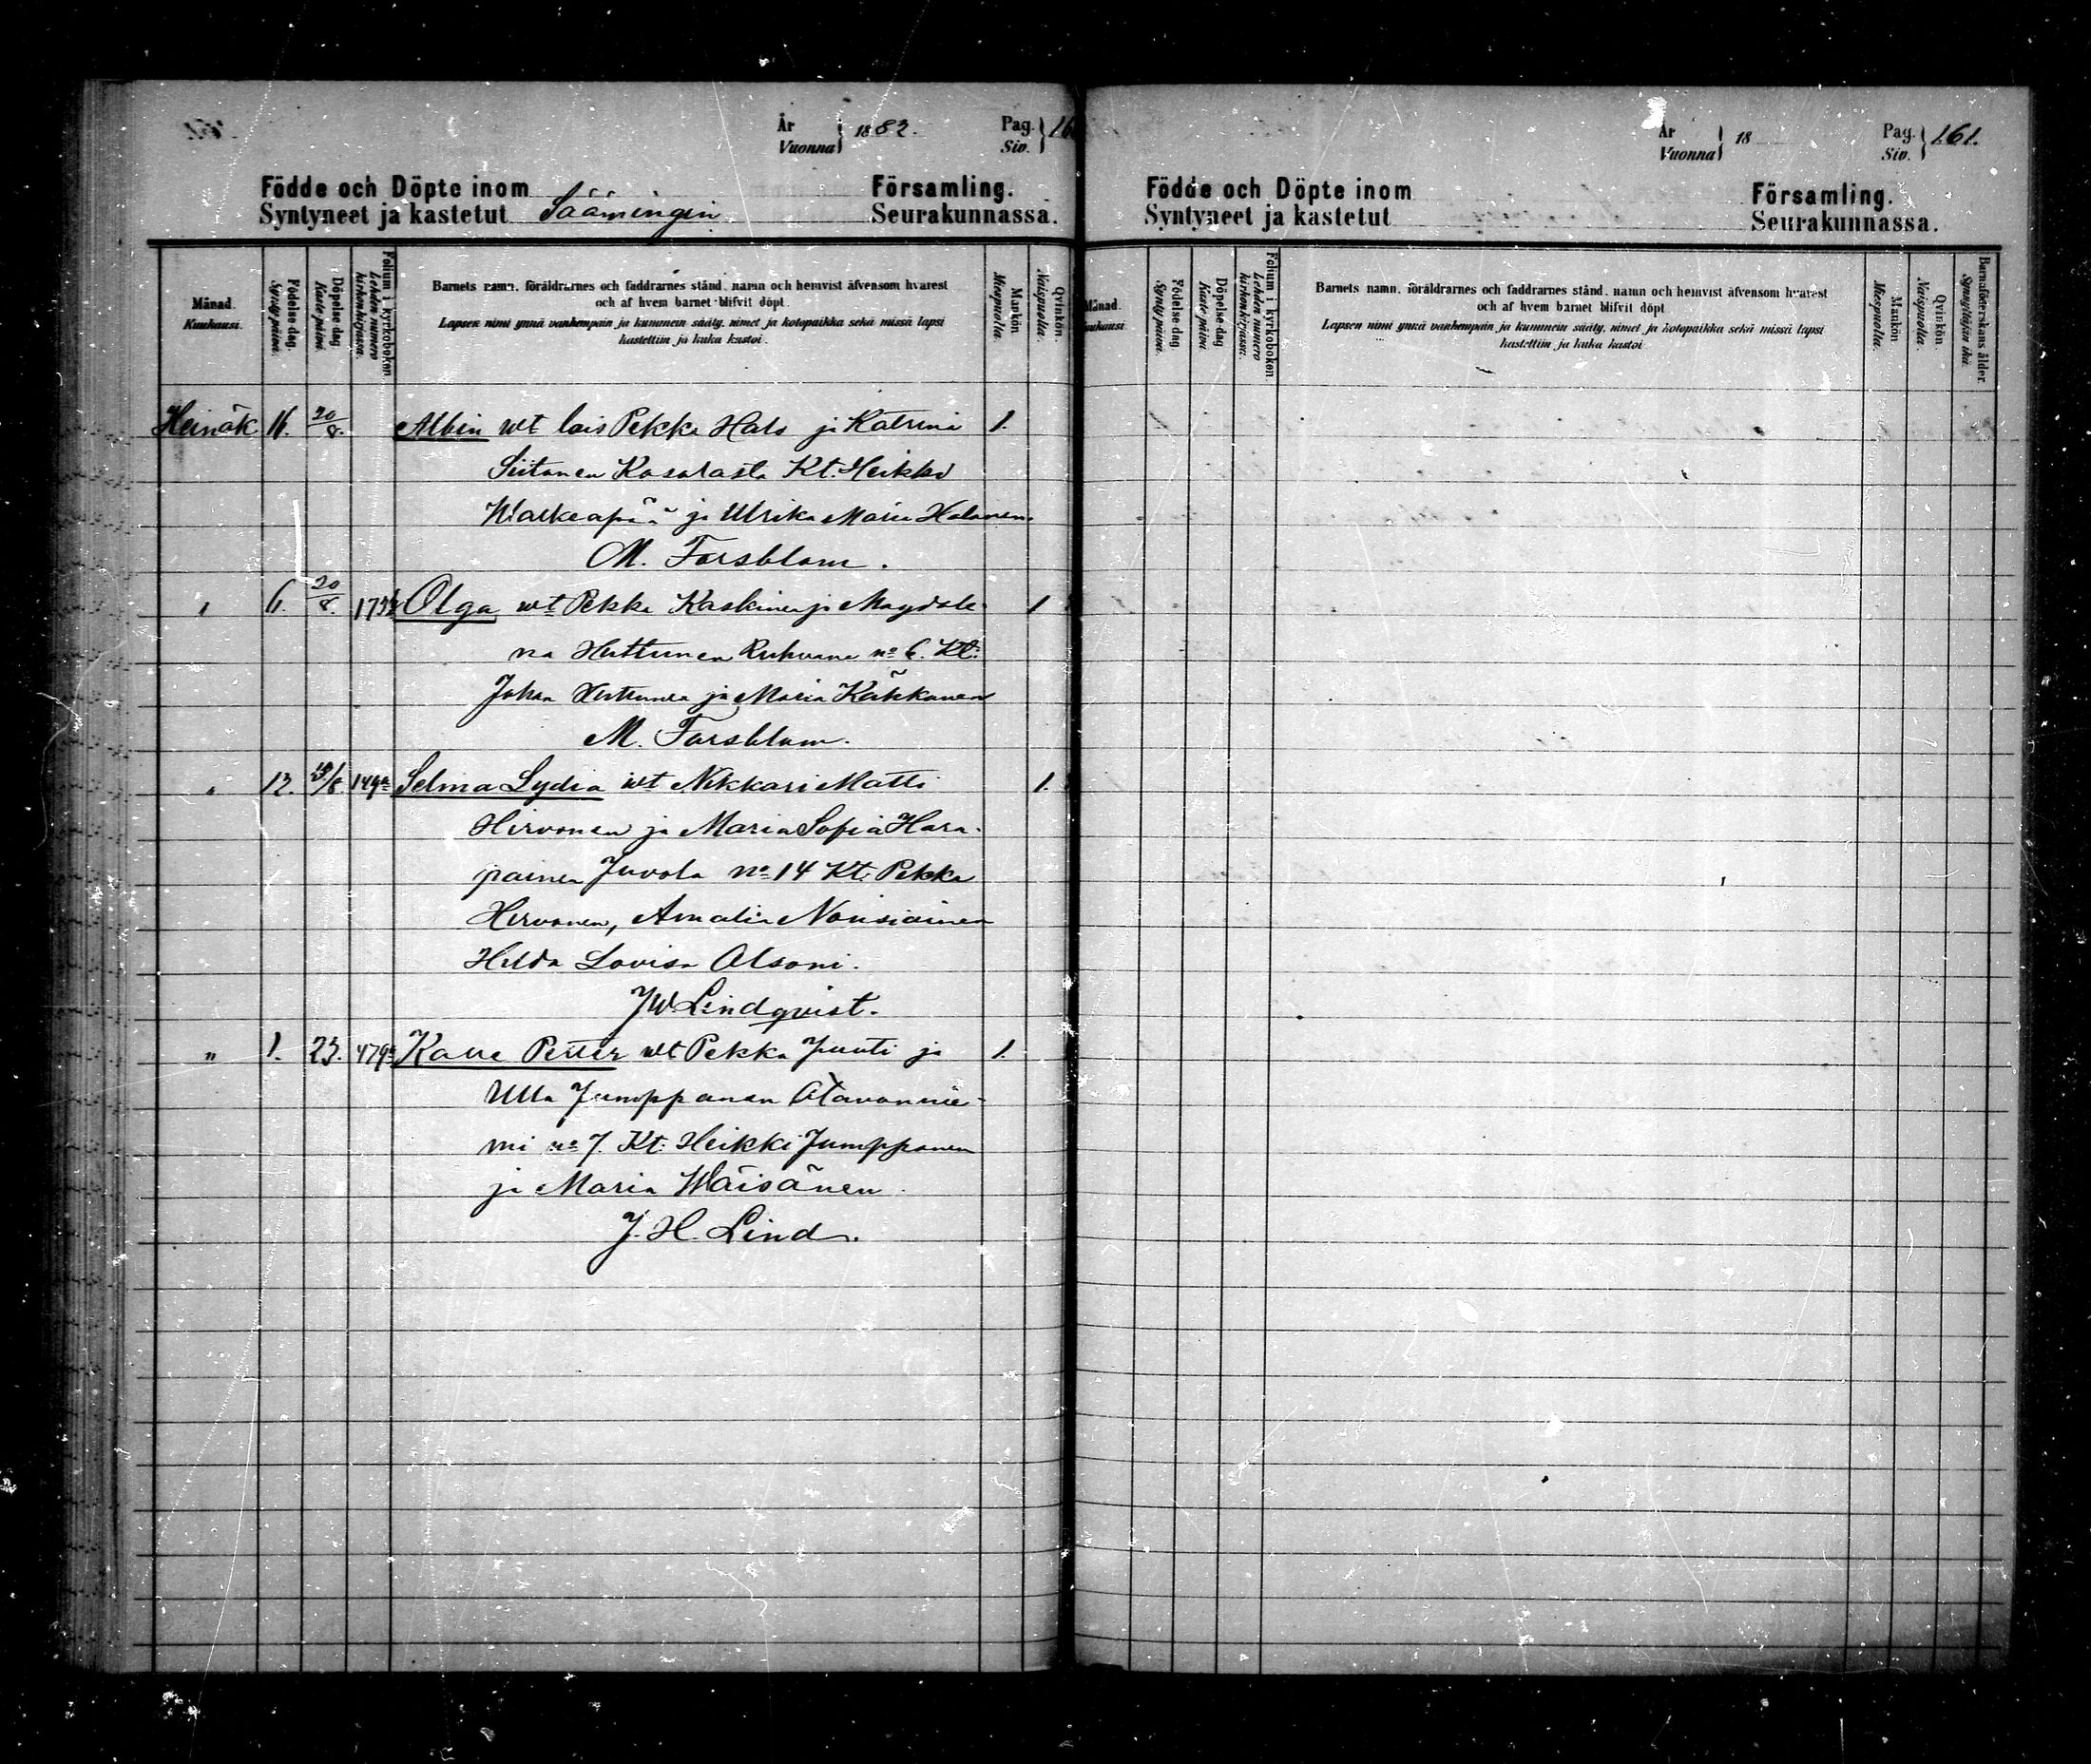 År
Vuonna } 1882.
Pag.
Siv. } 16
Födde och Döpte inom Församling.
Syntyneet ja kastetut Säämingin Seurakunnassa.
Månad.
Kuukausi.
Födelse dag.
Syntypäivä.
Döpelse dag
Kaste päivä.
Folium i kyrkoboken
Lehden numero
kirkonkirjassa.
Barnets namn, föräldrarnes och faddrarnes stånd, namn och hemvist äfvensom hvarest
och af hvem barnet blifvit döpt.
Lapsen nimi ynnä vanhempain ja kummein sääty, nimet ja kotopaikka sekä missä lapsi
kastettiin ja kuka kastoi.
Mankön
Miespuolia.
Qvinkön.
Naispuolia.
Heinäk 16. 20/8. Albin wt lois Pekka Hals ja Katrina 1.
Siitonen Kosolasta Kt. Heikki
Walkeapää ja Ulrika Maria Halonen.
M. Forsblom.
" 6. 20/8. Olga wt Pekka Kaskinen ja Magdale- 1
na Huttunen Ruhvana no 6. Kt:
Johan Huttunen ja Maria Kähkönen
M. Forsblom.
" 12. 149a Selma Lydia wt Nikkari Matti 1.
Hirvonen ja Maria Sofia Hara-
painen Juvola no 14 Kt. Pekka
Hirvonen, Amalia Nousiainen
Hilda Lovisa Alsoni.
JW Lindqvist.
" 1. 23. 479 Kalle Petter wt Pekka Juuti ja 1.
Ulla Jumppanen Otavannie-
mi no 7. Kt: Heikki Jumppanen
ja Maria Wäisänen.
J. H. Lind.
År
Vuonna } 18
Pag.
Siv. } 161.
Födde och Döpte inom Församling.
Syntyneet ja kastetut Seurakunnassa.
Månad.
Kuukausi
Födelse dag.
Syntypäivä.
Döpelse dag
Kaste päivä
Folium i kyrkoboken
Lehden numero
kirkonkirjassa.
Barnets namn, föräldrarnes och faddrarnes stånd, namn och hemvist äfvensom hvarest
och af hvem barnet blifvit döpt
Lapsen nimi ynnä vanhempain ja kummein sääty, nimet ja kotopaikka sekä missä lapsi
kastettiin ja kuka kastoi
Mankön
Miespuolia.
Qvinkön
Naispuolia.
Barnaföderskans ålder.
Synnyttäjän ikä.